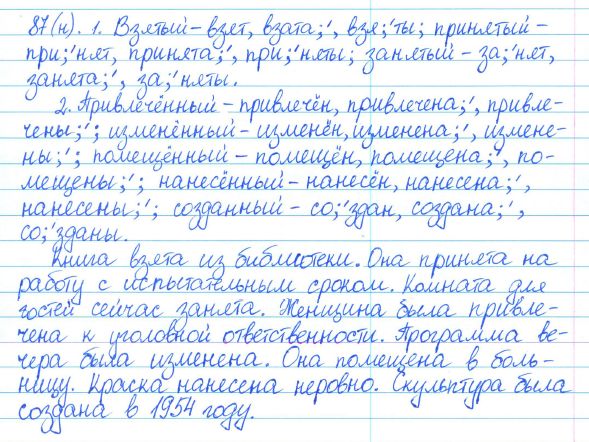 87(н). 1. Взятый – взят, взята;', взя;'ты; принятый –
при;'нят, принята;', при;'няты; занятый – за;'нят,
занята;', за;'няты.
2. Привлечённый – привлечён, привлечена;', привле-
чены;'; изменённый – изменён, изменена;', измене-
ны;'; помещённый – помещён, помещена;', по-
мещены;'; нанесённый – нанесён, нанесена;',
нанесены;'; созданный – со;'здан, создана;',
со;'зданы.
Книга взята из библиотеки. Она принята на
работу с испытательным сроком. Комната для
гостей сейчас занята. Женщина была привле-
чена к уголовной ответственности. Программа ве-
чера была изменена. Она помещена в боль-
ницу. Краска нанесена неровно. Скульптура была
создана в 1954 году.